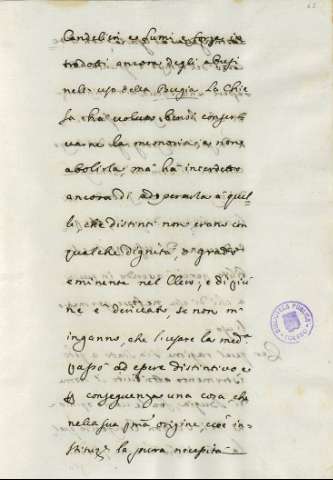 Candelieri e fumi e forse in
trodotti ancora degli abusi
nell'uso della Bugia. La Chie
sa ha voluto bensì conser
varne la memoria, e non
abolirla, ma ha interdetto
ancora di adoperarla a quel
li, che distinti non erano con
qualche dignità, o grado
eminente nel Clero; e di qui
ne è derivato, se non m'
inganno, che l'usare la med.
passò ad essere distintivo e
conseguenza una cosa, che
nella sua prima origine, cioè in
la pura necessità